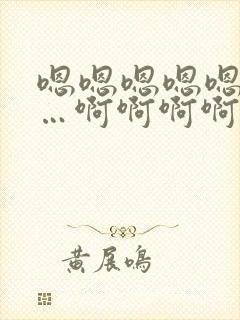 嗯嗯嗯嗯嗯
…啊啊啊啊
黄展鸣